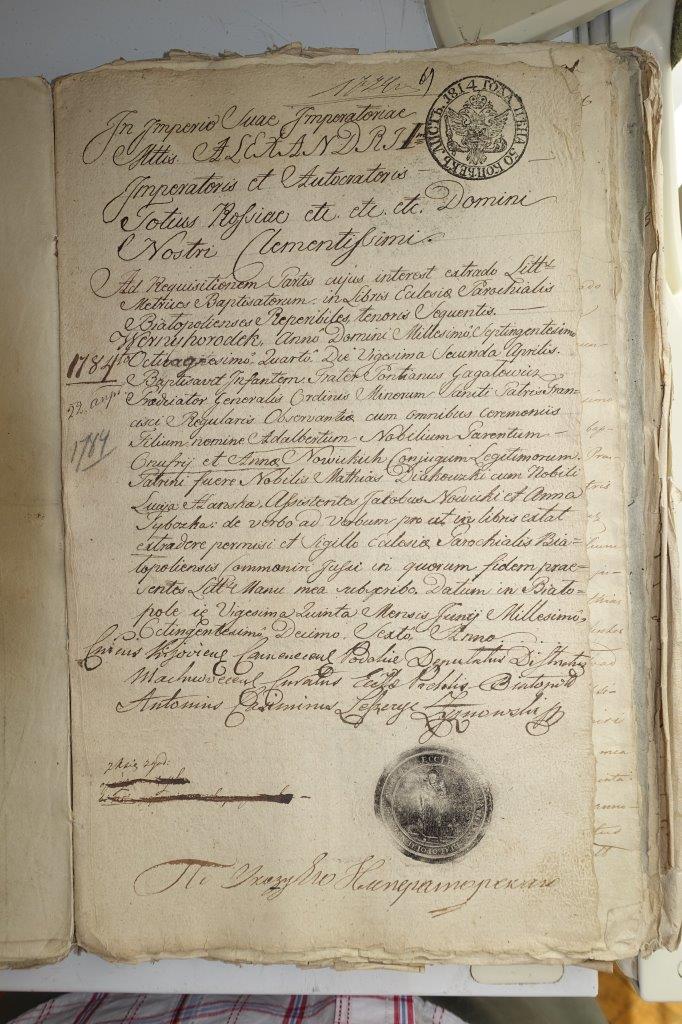 ЛИСТЪ. 1814 ГОДА ЦѢНА 50 КОПѢЕКЪ.
In Imperio Suae Imperatoriae
Mttis ALEXANDRII
Imperatoris et Autocratoris
Totius Rossiae etc. etc. etc. Domini
Nostri Clementissimi.
Ad Requisitionem Partis cujus interest extrado Litt
Metrices Baptisatorum in Libros Eclesiæ Parochialis
Białopolienses Reperibiles, tenoris Sequentis.
Wernihorodek, Anno Domini Millesimo Septingentesimo
1784
Octuagesimo Quarto Die Vigesima Secunda Aprilis.
Baptisavit Infantem Frater Pontianus Gagalowicz
Prædicator Generalis Ordinis Minorum Sancti Patris Fran=
cisci Regularis Observantiæ cum omnibus Ceremoniis
1784
Filium nomine Adalbertum Nobilium Parentum
Onufrij et Annæ Nowickich Conjugum Legitimorum.
Patrini fuere Nobilis Mathias Diakowski cum Nobili
Assistentes Jakobus Nowicki et Anna
de verbo ad verbum pro ut in libris extat
extradere permisi et Sigillo Eclesiæ Parochialis Bia=
łopoliensis Commoniri Jussi in quorum fidem præ=
sentes Litt Manu mea subscribo. Datum in Biało=
pole Vigesima Quinta Mensis Junij Millesimo
Octingentesimo Decimo Sexto Anno.
Camenecens Podolie Deputatus Districtus
Machnovecens Curatus
Antonius Casimirus
По Указу Его Императорскаго